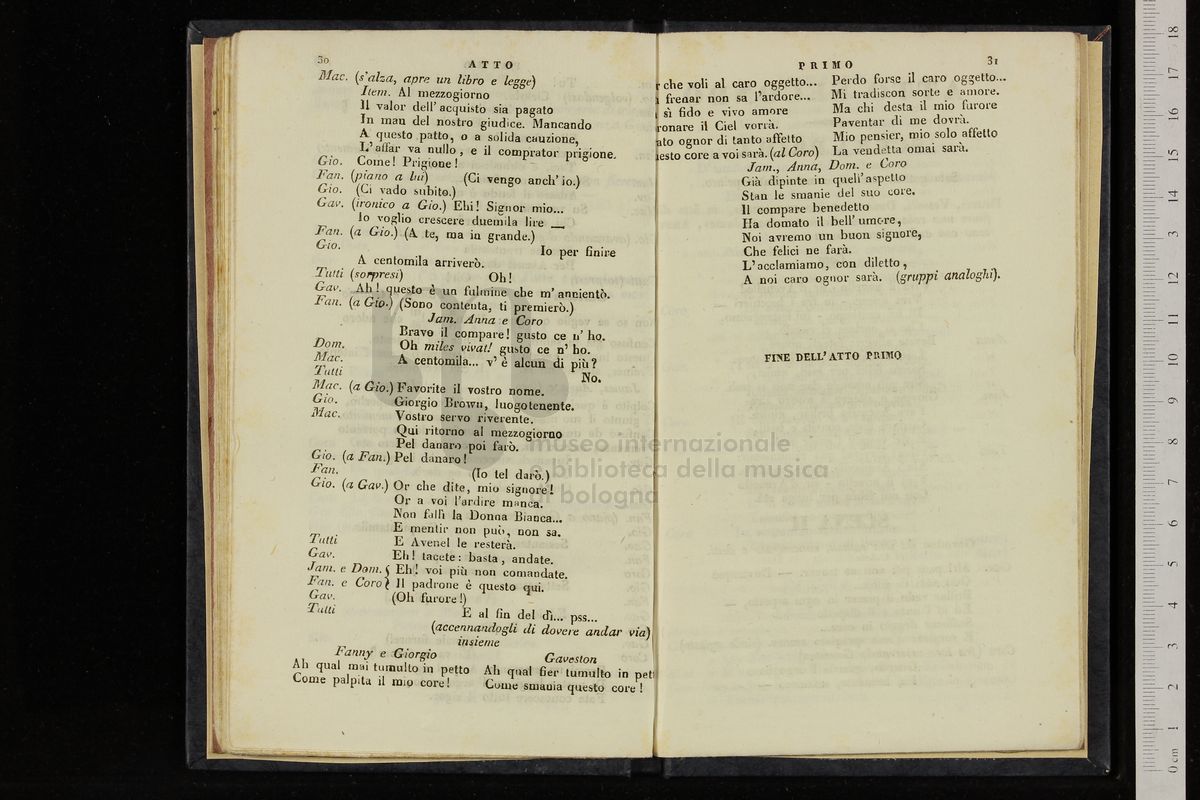 30
ATTO
Mac. (s'alza, apre un libro e legge)
Item. Al mezzogiorno
Il valor dell' acquisto sia pagato
In man del nostro giudice. Mancando
A questo patto, o a solida cauzione,
L' affar va nullo, e il comprator prigione.
Gio. Come! Prigione!
Fan. (piano a lui) (Ci vengo anch' io.)
Gio. (Ci vado subito.)
Gav. (ironico a Gio.) Ehi! Signor mio...
Io voglio crescere duemila lire —
Fan. (a Gio.) (A te, ma in grande.)
Gio. Io per finire
A centomila arriverò.
Tutti (sorpresi) Oh!
Gav. Ah! questo è un fulmine che m' annientò.
Fan. (a Gio.) (Sono contenta, ti premierò.)
Jam. Anna e Coro
Bravo il compare! gusto ce n' ho.
Dom. Oh miles vivat! gusto ce n' ho.
Mac. A centomila... v' è alcun di più?
Tutti No.
Mac. (a Gio.) Favorite il vostro nome.
Gio. Giorgio Brown, luogotenente.
Mac. Vostro servo riverente.
Qui ritorno al mezzogiorno
Pel danaro poi farò.
Gio. (a Fan.) Pel danaro!
Fan. (Io tel darò.)
Gio. (a Gav.) Or che dite, mio signore!
Or a voi l'ardire manca.
Non fallì la Donna Bianca...
E mentir non può, non sa.
Tutti E Avenel le resterà.
Gav. Eh! tacete: basta, andate.
Jam. e Dom. Eh! voi più non comandate.
Fan. e Coro Il padrone è questo qui.
Gav. (Oh furore!)
Tutti E al fin del dì... pss...
(accennandogli di dovere andar via)
insieme
Fanny e Giorgio
Ah qual mai tumulto in petto
Come palpita il mio core!
Gaveston
Ah qual fier tumulto in pet
Come smania questo core!
PRIMO
31
che voli al caro oggetto...
frenar non sa l'ardore...
sì fido e vivo amore
ronare il Ciel vorrà.
ato ognor di tanto affetto
esto core a voi sarà. (al Coro)
Perdo forse il caro oggetto...
Mi tradiscon sorte e amore.
Ma chi desta il mio furore
Paventar di me dovrà.
Mio pensier, mio solo affetto
La vendetta omai sarà.
Jam., Anna, Dom. e Coro
Già dipinte in quell' aspetto
Stan le smanie del suo core.
Il compare benedetto
Ha domato il bell' umore,
Noi avremo un buon signore,
Che felici ne farà.
L' acclamiamo, con diletto,
A noi caro ognor sarà. (gruppi analoghi).
FINE DELL' ATTO PRIMO
museo internazionale
e biblioteca della musica
di bologna
0 cm 1 2 3 4 5 6 7 8 9 10 11 12 13 14 15 16 17 18